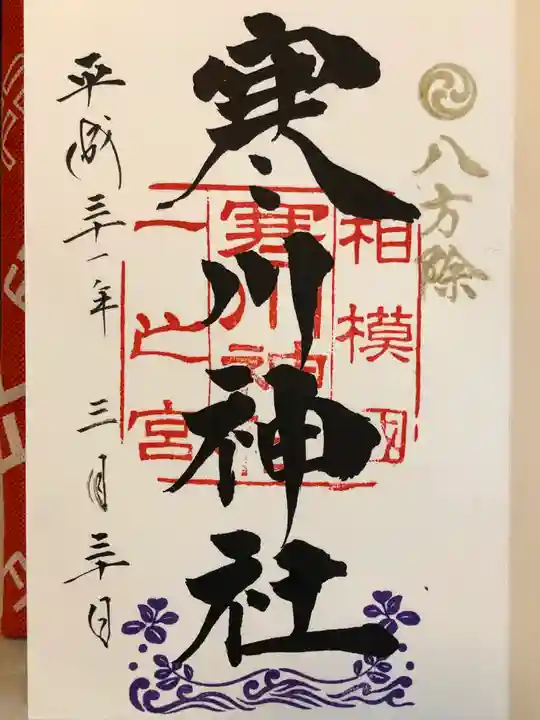 八方除
寒川神社
相模國
寒川神
一之宮
平成三十一年 三月三十日